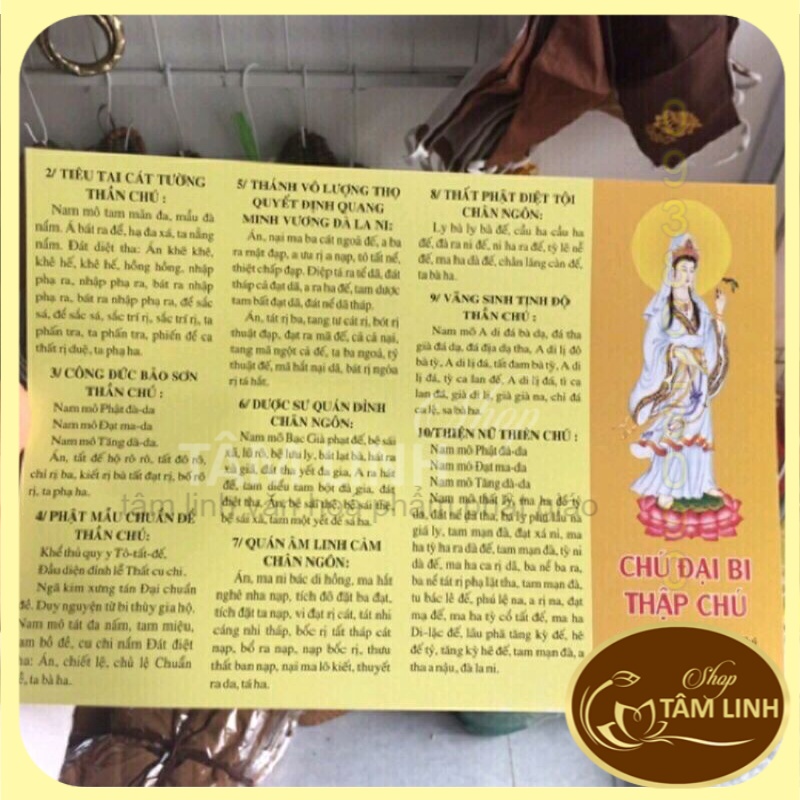 2/ TIÊU TAI CÁT TƯỜNG
THẦN CHÚ :
Nam mô tam mãn đa, mẫu đà
nẩm. Á bát ra đề, hạ đa xá, ta nẵng
nẩm. Đát điệt tha: Án khê khê,
khê hế, khê hế, hồng hồng, nhập
phạ ra, nhập phạ ra, bát ra nhập
phạ ra, bát ra nhập phạ ra, để sắc
sá, để sắc sá, sắc trí rị, sắc trí rị, ta
phấn tra, ta phấn tra, phiến để ca
thất rị duệ, ta phạ ha.
3/ CÔNG ĐỨC BẢO SƠN
THẦN CHÚ :
Nam mô Phật đà-da
Nam mô Đạt ma-da
Nam mô Tăng dà-da.
Án, tất đế hộ rô rô, tất đô rô,
chỉ rị ba, kiết rị bà tất đạt rị, bố rô
rị, ta phạ ha.
4/ PHẬT MẪU CHUẨN ĐỀ
THẦN CHÚ:
Khể thủ quy y Tô-tất-đế.
Đầu diện đảnh lễ Thất cu chi.
Ngã kim xưng tán Đại chuẩn
đề. Duy nguyện từ bi thùy gia hộ.
Nam mô tát đa nẩm, tam miệu,
am bồ đề, cu chi nẩm Đát điệt
ha: Án, chiết lệ, chủ lệ Chuẩn
ề, ta bà ha.
5/ THÁNH VÔ LƯỢNG THỌ
QUYẾT ĐỊNH QUANG
MINH VƯƠNG ĐÀ LA NI:
Án, nại ma ba cát ngoã đế, a ba
ra mật đạp, a ưu rị a nạp, tô tất nể,
thiệt chấp đạp. Điệp tá ra tể dã, đát
tháp cả đạt dã, a ra ha đế, tam dược
tam bất đạt dã, đát nể dã tháp.
Án, tát rị ba, tang tư cát rị, bót rị
thuật đạp, đạt ra mã đế, cả cả nại,
tang mã ngột cả đế, ta ba ngoà, tỷ
thuật đế, mã hắt nại dã, bát rị ngõa
rị tá hắt.
6/ DƯỢC SƯ QUÁN ĐẢNH
CHÂN NGÔN:
Nam mô Bạc Già phạt đế, bệ sái
xã, lũ rô, bệ lưu ly, bát lạt bà, hát ra
xà giã, đát tha yết đa giã, A ra hát
đế, tam diểu tam bột đà gia, đát
điệt tha. Án, bệ sái thệ, bệ sái thệ,
bệ sái xã, tam một yết đế sá ha.
7/ QUÁN ÂM LINH CẢM
CHÂN NGÔN:
Án, ma ni bác di hồng, ma hắt
nghê nha nạp, tích đô đặt ba đạt,
tích đặt ta nạp, vi đạt rị cát, tát nhi
cáng nhi tháp, bốc rị tất tháp cát
nạp, bổ ra nạp, nạp bốc rị, thưu
thất ban nạp, nại ma lô kiết, thuyết
ra da, tá ha.
8/ THẤT PHẬT DIỆT TỘI
CHÂN NGÔN:
Ly bà ly bà đế, cầu ha cầu ha
đế, đà ra ni đế, ni ha ra đế, tỳ lê nể
đế, ma ha dà đế, chân lăng càn đế,
ta bà ha.
9/ VÃNG SINH TỊNH ĐỘ
THẦN CHÚ :
Nam mô A di đá bà dạ, đá tha
già đá dạ, đá địa dạ tha, A di lị đô
bà tỳ, A di lị đá, tất đam bà tỳ, A di
lị đá, tỳ ca lan đế. A di lị đá, tì ca
lan đá, già di lị, già già na, chỉ đá
ca lệ, sa bà ha.
10/THIỆN NỮ THIÊN CHÚ :
Nam mô Phật đà-da
Nam mô Đạt ma-da
Nam mô Tăng dà-da
Nam mô thất lỵ, ma ha đề tỷ
da, đát nể dã tha, ba lỵ phú lầu na
giá lỵ, tam mạn đà, đạt xá ni, ma
ha tỳ ha ra dà đế, tam mạn đà, tỳ ni
dà đế, ma ha ca rị dã, ba nể ba ra,
ba nể tát rị phạ lặt tha, tam mạn đà,
tu bác lê đế, phú lệ na, a rị na, đạt
mạ đế, ma ha tỳ cổ tất đế, ma ha
Di-lặc đế, lâu phả tăng kỳ đế, hê
đế tỷ, tăng kỳ hê đế, tam mạn đà, a
tha a nậu, đà la ni.
CHÚ ĐẠI BI
THẬP CHÚ
Shop
TÂM LINH